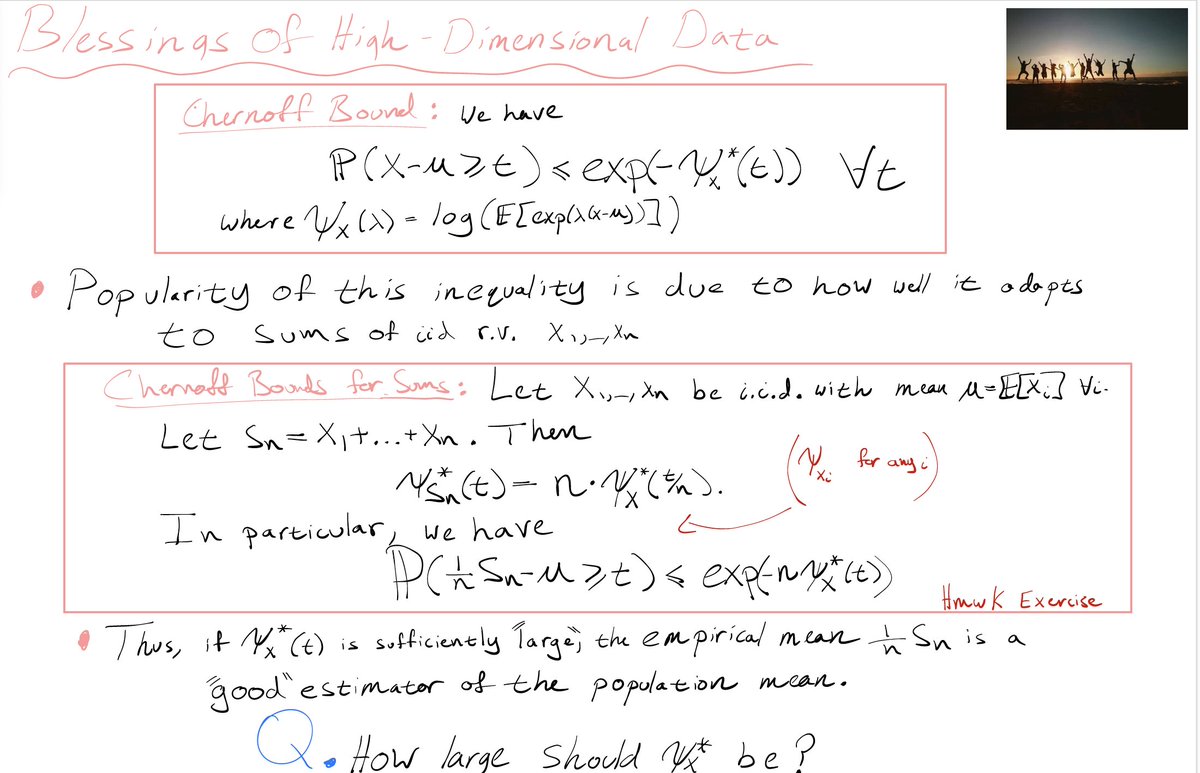 Blessings of High-Dimensional Data
Chernoff Bound: We have
ℙ(X-μ⩾t) ⩽ exp(-Ψ*_X(t)) ∀t
where Ψ_X(λ) = log(𝔼[exp(λ(X-μ))])
• Popularity of this inequality is due to how well it adapts
to sums of iid r.v. X₁,…,Xn
Chernoff Bounds for Sums: Let X₁,…,Xn be i.i.d. with mean μ=𝔼[Xi] ∀i.
Let Sn = X₁+...+Xn. Then
Ψ*_Sn(t) = n·Ψ*_X(t/n).
(Ψ_Xi for any i)
In particular, we have
ℙ(1/n Sn-μ⩾t) ⩽ exp(-nΨ*_X(t))
Hmwk Exercise
• Thus, if Ψ*_X(t) is sufficiently "large", the empirical mean 1/n Sn is a
"good" estimator of the population mean.
Q. How large should Ψ*_X be?